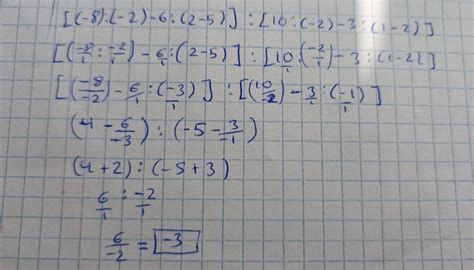 [(-8):(-2)-6:(2-5)]:[10:(-2)-3:(1-2)]
[(-8/1:-2/1)-6/1:(2-5)]:[10/1:(-2/1)-3:(1-2)]
[(-8/-2)-6/1:(-3/1)]:[(10/-2)-3/1:(-1/1)]
(4-6/-3):(-5-3/-1)
(4+2):(-5+3)
6/1:-2/1
6/-2=-3